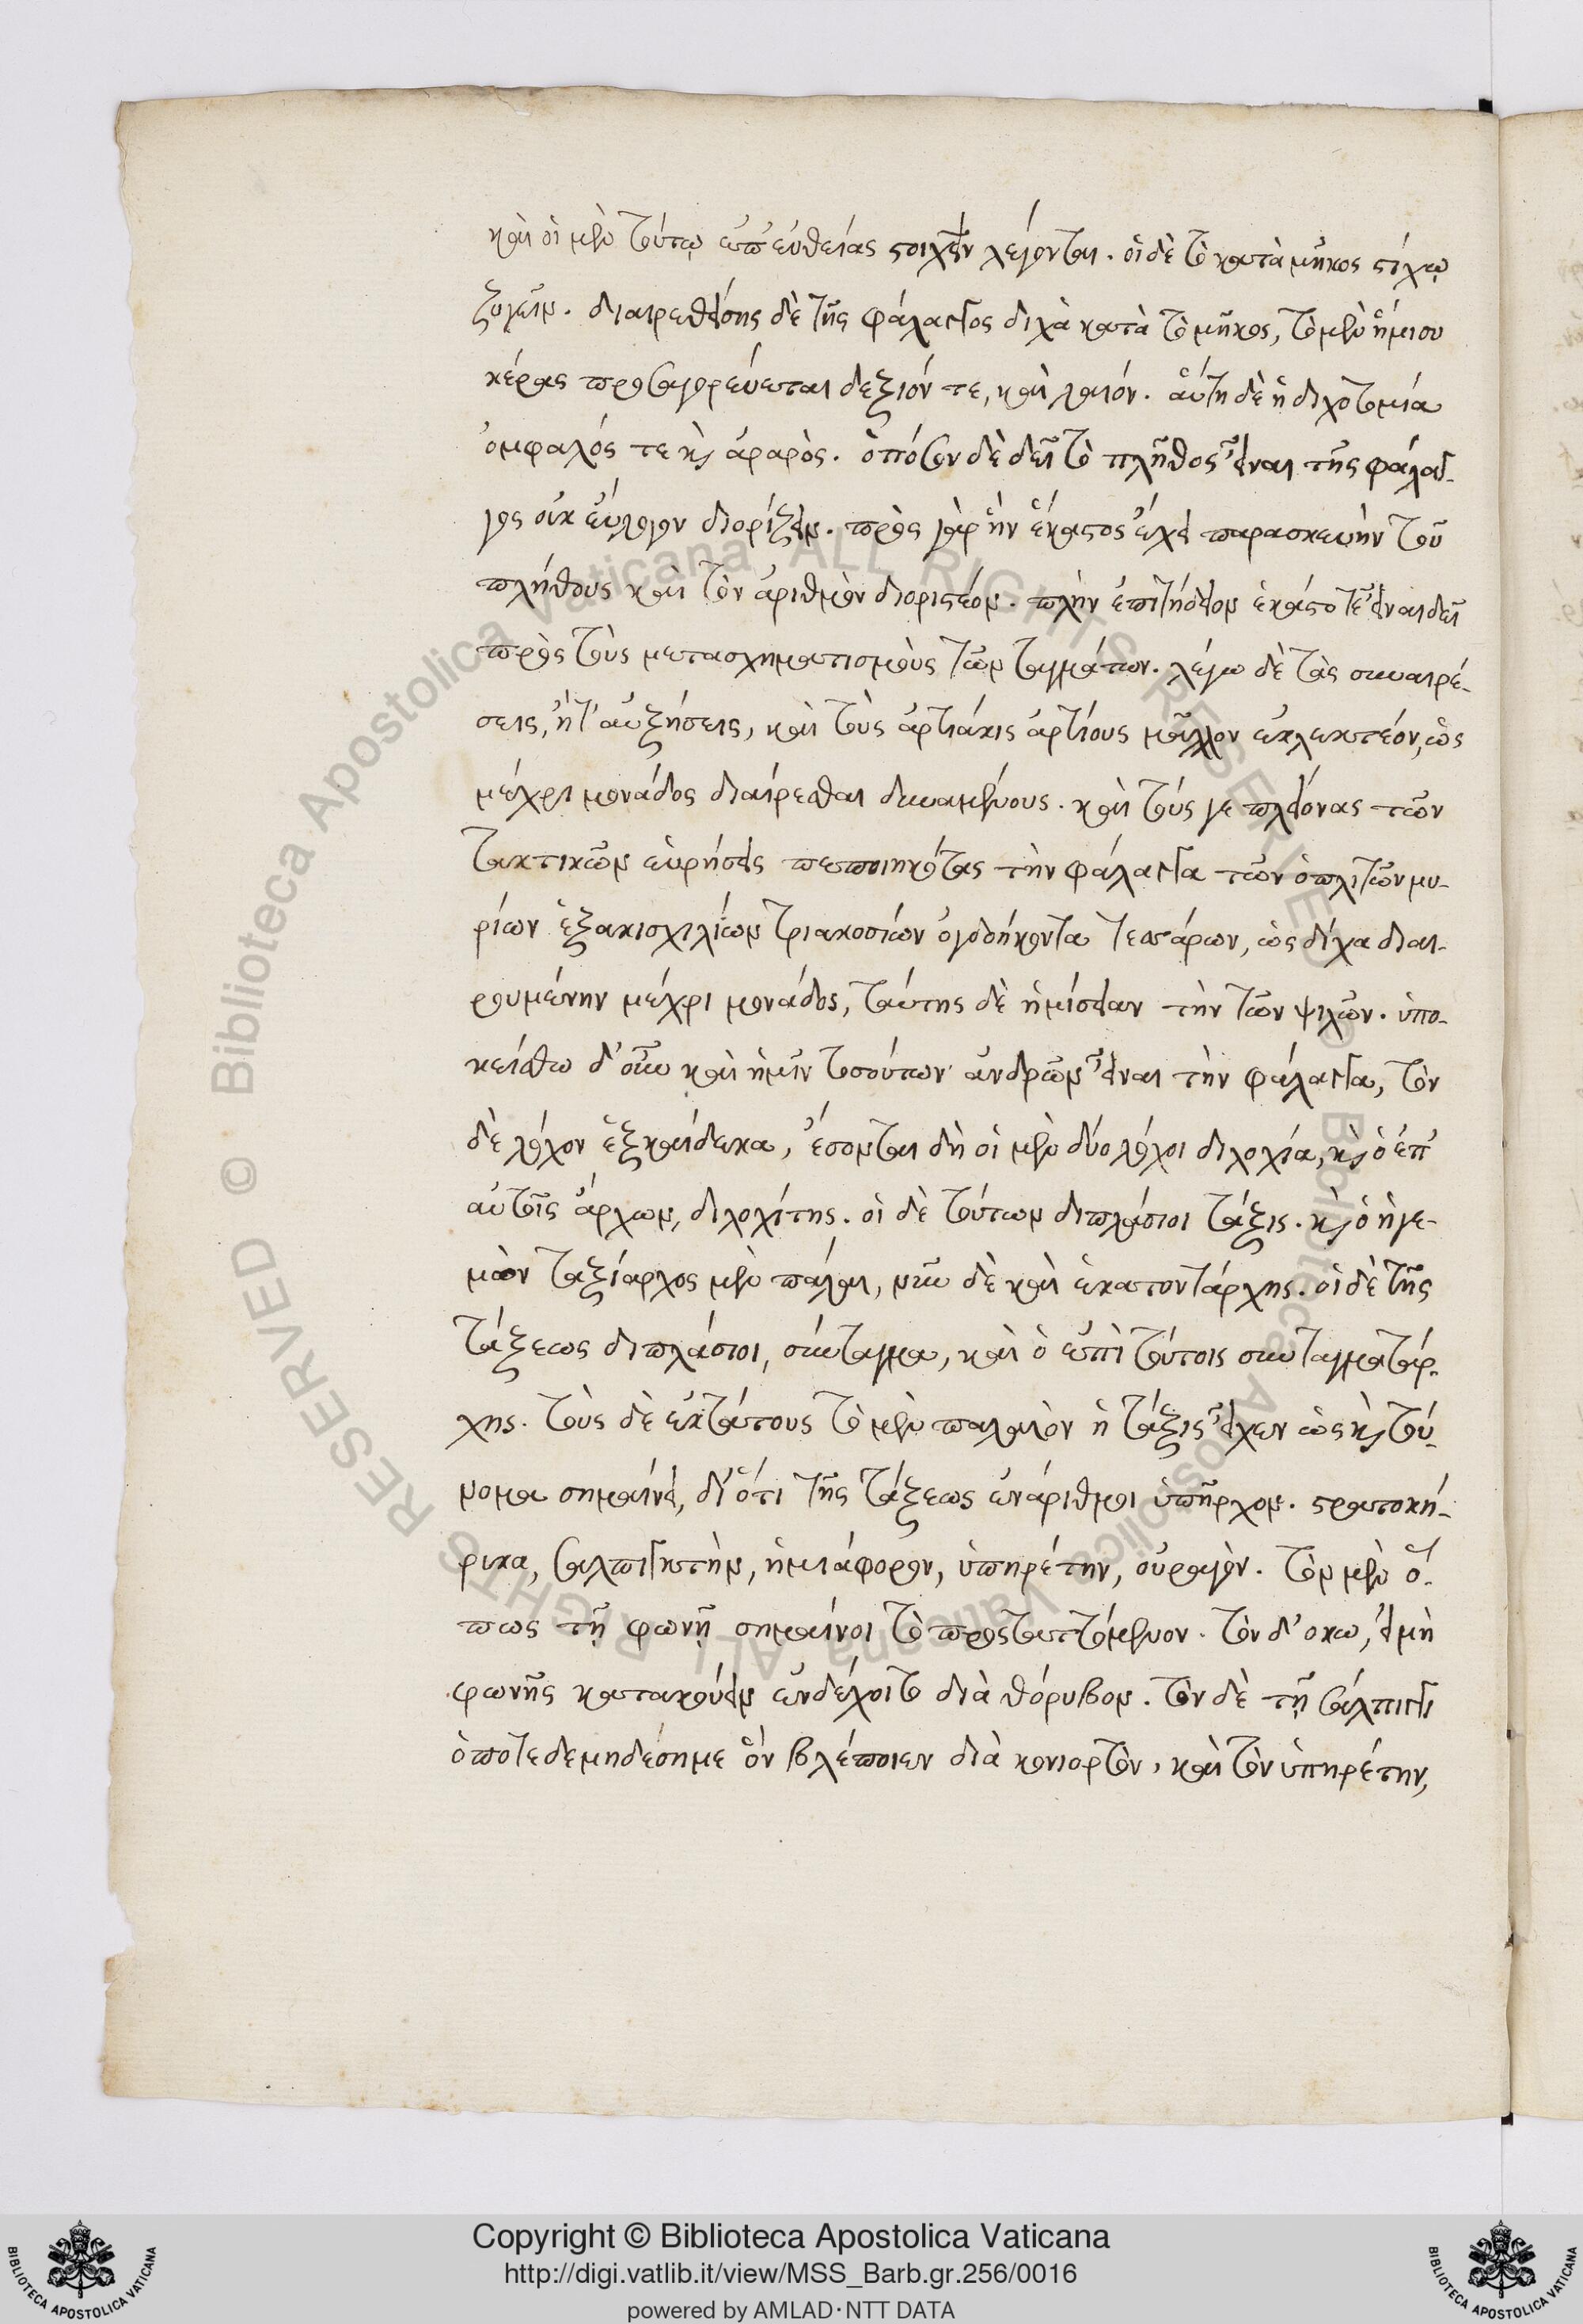 καὶ οἱ μὲν τούτῳ ἐπ' εὐθείας στοιχεῖν λέγονται. οἱ δὲ τὸ κατὰ μῆκος στίχῳ
ζυγεῖν. διαιρεθείσης δὲ τῆς φάλαγγος διχὰ κατὰ τὸ μῆκος, τὸ μὲν ἥμισυ
κέρας προσαγορεύεται δεξιόν τε, καὶ λαιόν. αὕτη δὲ ἡ διχοτομία
ὀμφαλός τε καὶ ἀραρὸς. ὁπόσον δὲ δεῖ τὸ πλῆθος εἶναι τῆς φάλαγ-
γος οὐκ εὔλογον διορίζειν. πρὸς γὰρ ἣν ἕκαστος εἴχει παρασκευὴν τοῦ
πλήθους καὶ τὸν ἀριθμὸν διοριστέον. πλὴν ἐπιτήδειον ἑκάστοτε εἶναι δεῖ
πρὸς τοὺς μετασχηματισμοὺς τῶν ταγμάτων. λέγω δὲ τὰς συναιρέ-
σεις, ἤτ' αὐξήσεις, καὶ τοὺς ἀρτιάκις ἀρτίους μᾶλλον ἐκλεκτέον, ὡς
μέχρι μονάδος διαίρεσθαι δυναμένους. καὶ τούς γε πλείονας τῶν
τακτικῶν εὑρήσεις πεποιηκότας τὴν φάλαγγα τῶν ὁπλιτῶν μυ-
ρίων ἑξακισχιλίων τριακοσίων ὀγδοήκοντα τεσσάρων, ὡς δίχα διαι-
ρουμένην μέχρι μονάδος, ταύτης δὲ ἡμίσειαν τὴν τῶν ψιλῶν. ὑπο-
κείσθω δ' οὖν καὶ ἡμῖν τοσούτων ἀνδρῶν εἶναι τὴν φάλαγγα, τὸν
δὲ λόχον ἑξκαίδεκα, ἔσονται δὴ οἱ μὲν δύο λόχοι διλοχία, καὶ ὁ ἐπ'
αὐτοῖς ἄρχων, διλοχίτης. οἱ δὲ τούτων διπλάσιοι τάξις. καὶ ὁ ἡγε-
μὼν ταξίαρχος μὲν πάλαι, νῦν δὲ καὶ ἑκατοντάρχης. οἱ δὲ τῆς
τάξεως διπλάσιοι, σύνταγμα, καὶ ὁ ἐπὶ τούτοις συνταγματάρ-
χης. τοὺς δὲ ἐκτάτους τὸ μὲν παλαιὸν ἡ τάξις εἶχεν ὡς καὶ τού-
νομα σημαίνει, δι' ὅτι τῆς τάξεως ἐνάριθμοι ὑπῆρχον. στρατοκή-
ρικα, σαλπιγκτὴν, ἡμιάφορον, ὑπηρέτην, οὐραγὸν. τὸν μὲν ὅ-
πως τῇ φωνῇ σημαίνοι τὸ προσταττόμενον. τὸν δ' οκω, εἰ μὴ
φωνῆς κατακούειν ἐνδέχοιτο διὰ θόρυβον. τὸν δὲ τῇ σάλπιγγι
ὁποτεδεμηδέσημε ὃν βλέποιεν διὰ κονιορτὸν, καὶ τὸν ὑπηρέτην,
© Biblioteca Apostolica Vaticana ALL RIGHTS RESERVED © Biblioteca Apostolica Vaticana ALL RIGHTS RESERVED
BIBLIOTECA APOSTOLICA VATICANA
Copyright © Biblioteca Apostolica Vaticana
http://digi.vatlib.it/view/MSS_Barb.gr.256/0016
powered by AMLAD·NTT DATA
BIBLIOTECA APOSTOLICA VATICANA